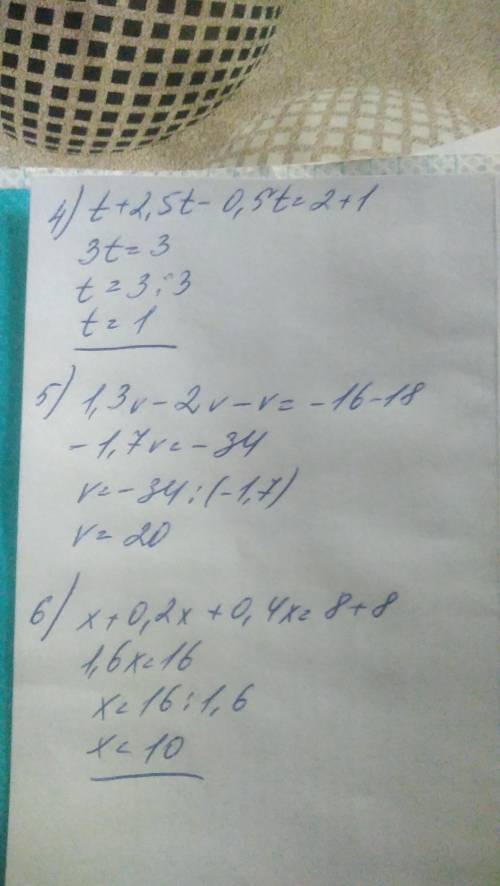 4) t+2,5t-0,5t=2+1
3t=3
t=3:3
t=1
5) 1,3v-2v-v=-16-18
-1,7v=-34
v=-34:(-1,7)
v=20
6) x+0,2x+0,4x=8+8
1,6x=16
x=16:1,6
x=10